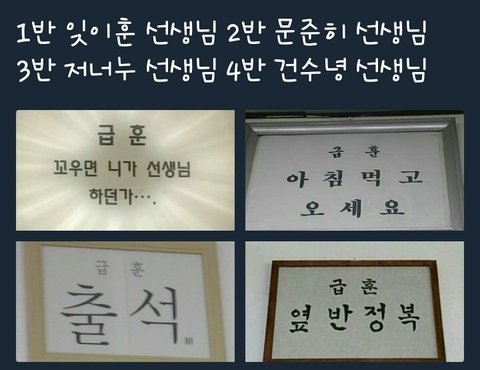 1반 잊이훈 선생님 2반 문준히 선생님
3반 저너누 선생님 4반 건수녕 선생님
급훈
꼬우면 니가 선생님
하던가….
급훈
아침먹고
오세요
급훈
출석
급훈
옆반정복